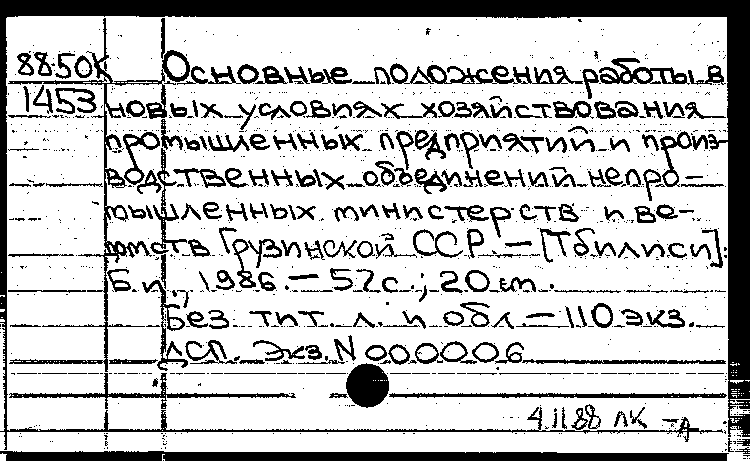 88-50К Основные положения работы в
1453 новых условиях хозяйствования
промышленных предприятий и произ-
водственных объединений непро-
мышленных министерств и ве-
домств Грузинской ССР. — [Тбилиси]:
Б.и., 1986. — 57с.; 20 см.
Без тит. л. и обл. — 110 экз.
ДСП. Экз. N 000006
4.11.88 ЛК